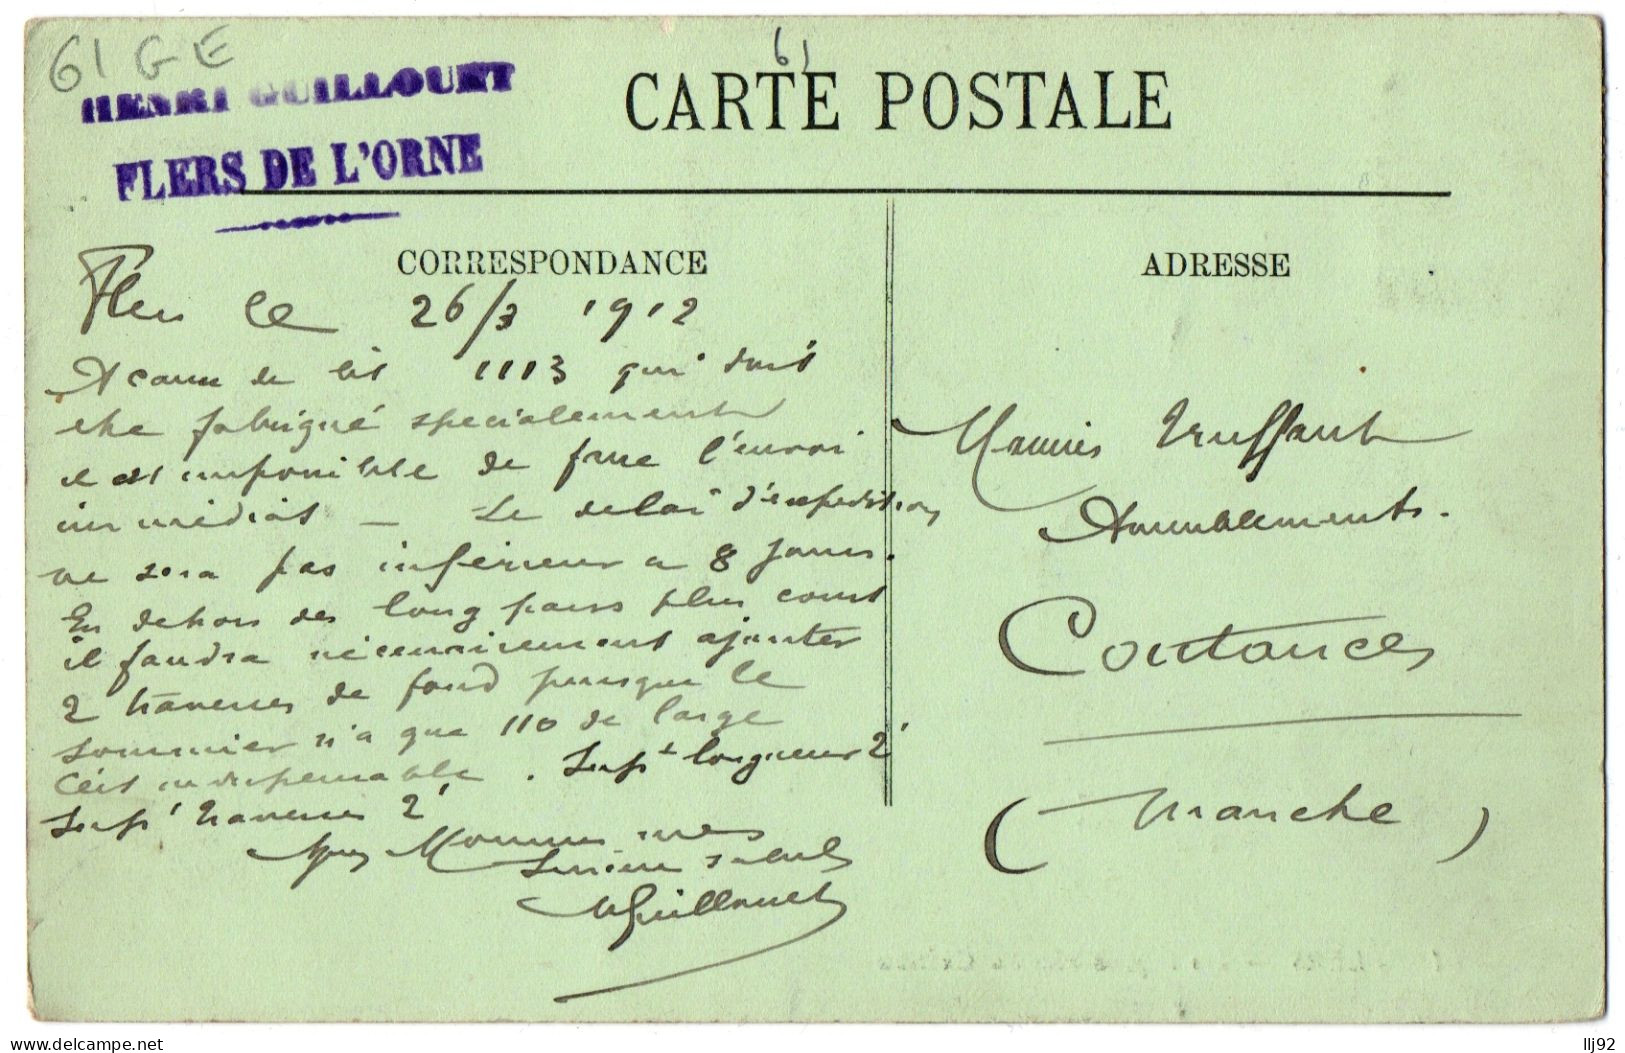 61 GE
61
HENRI GUILLOUET
FLERS DE L'ORNE
CARTE POSTALE
CORRESPONDANCE
ADRESSE
Flers le 26/3 1912
A cause du lit 1113 qui doit
etre fabriqué specialement
il est impossible de faire l'envoi
immédiat — Le delai d'expedition
ne sera pas inférieur a 8 jours.
En dehors des long pans plus court
il faudra nécessairement ajouter
2 traverses de fond puisque le
sommier n'a que 110 de large
C'est indispensable. Supt longueur 2'
Supt traverses 2'
Agreez Monsieur mes
Sincères saluts
HGuillouet
Truffaut
Ameublements.
Coutances
(Manche)
llj92